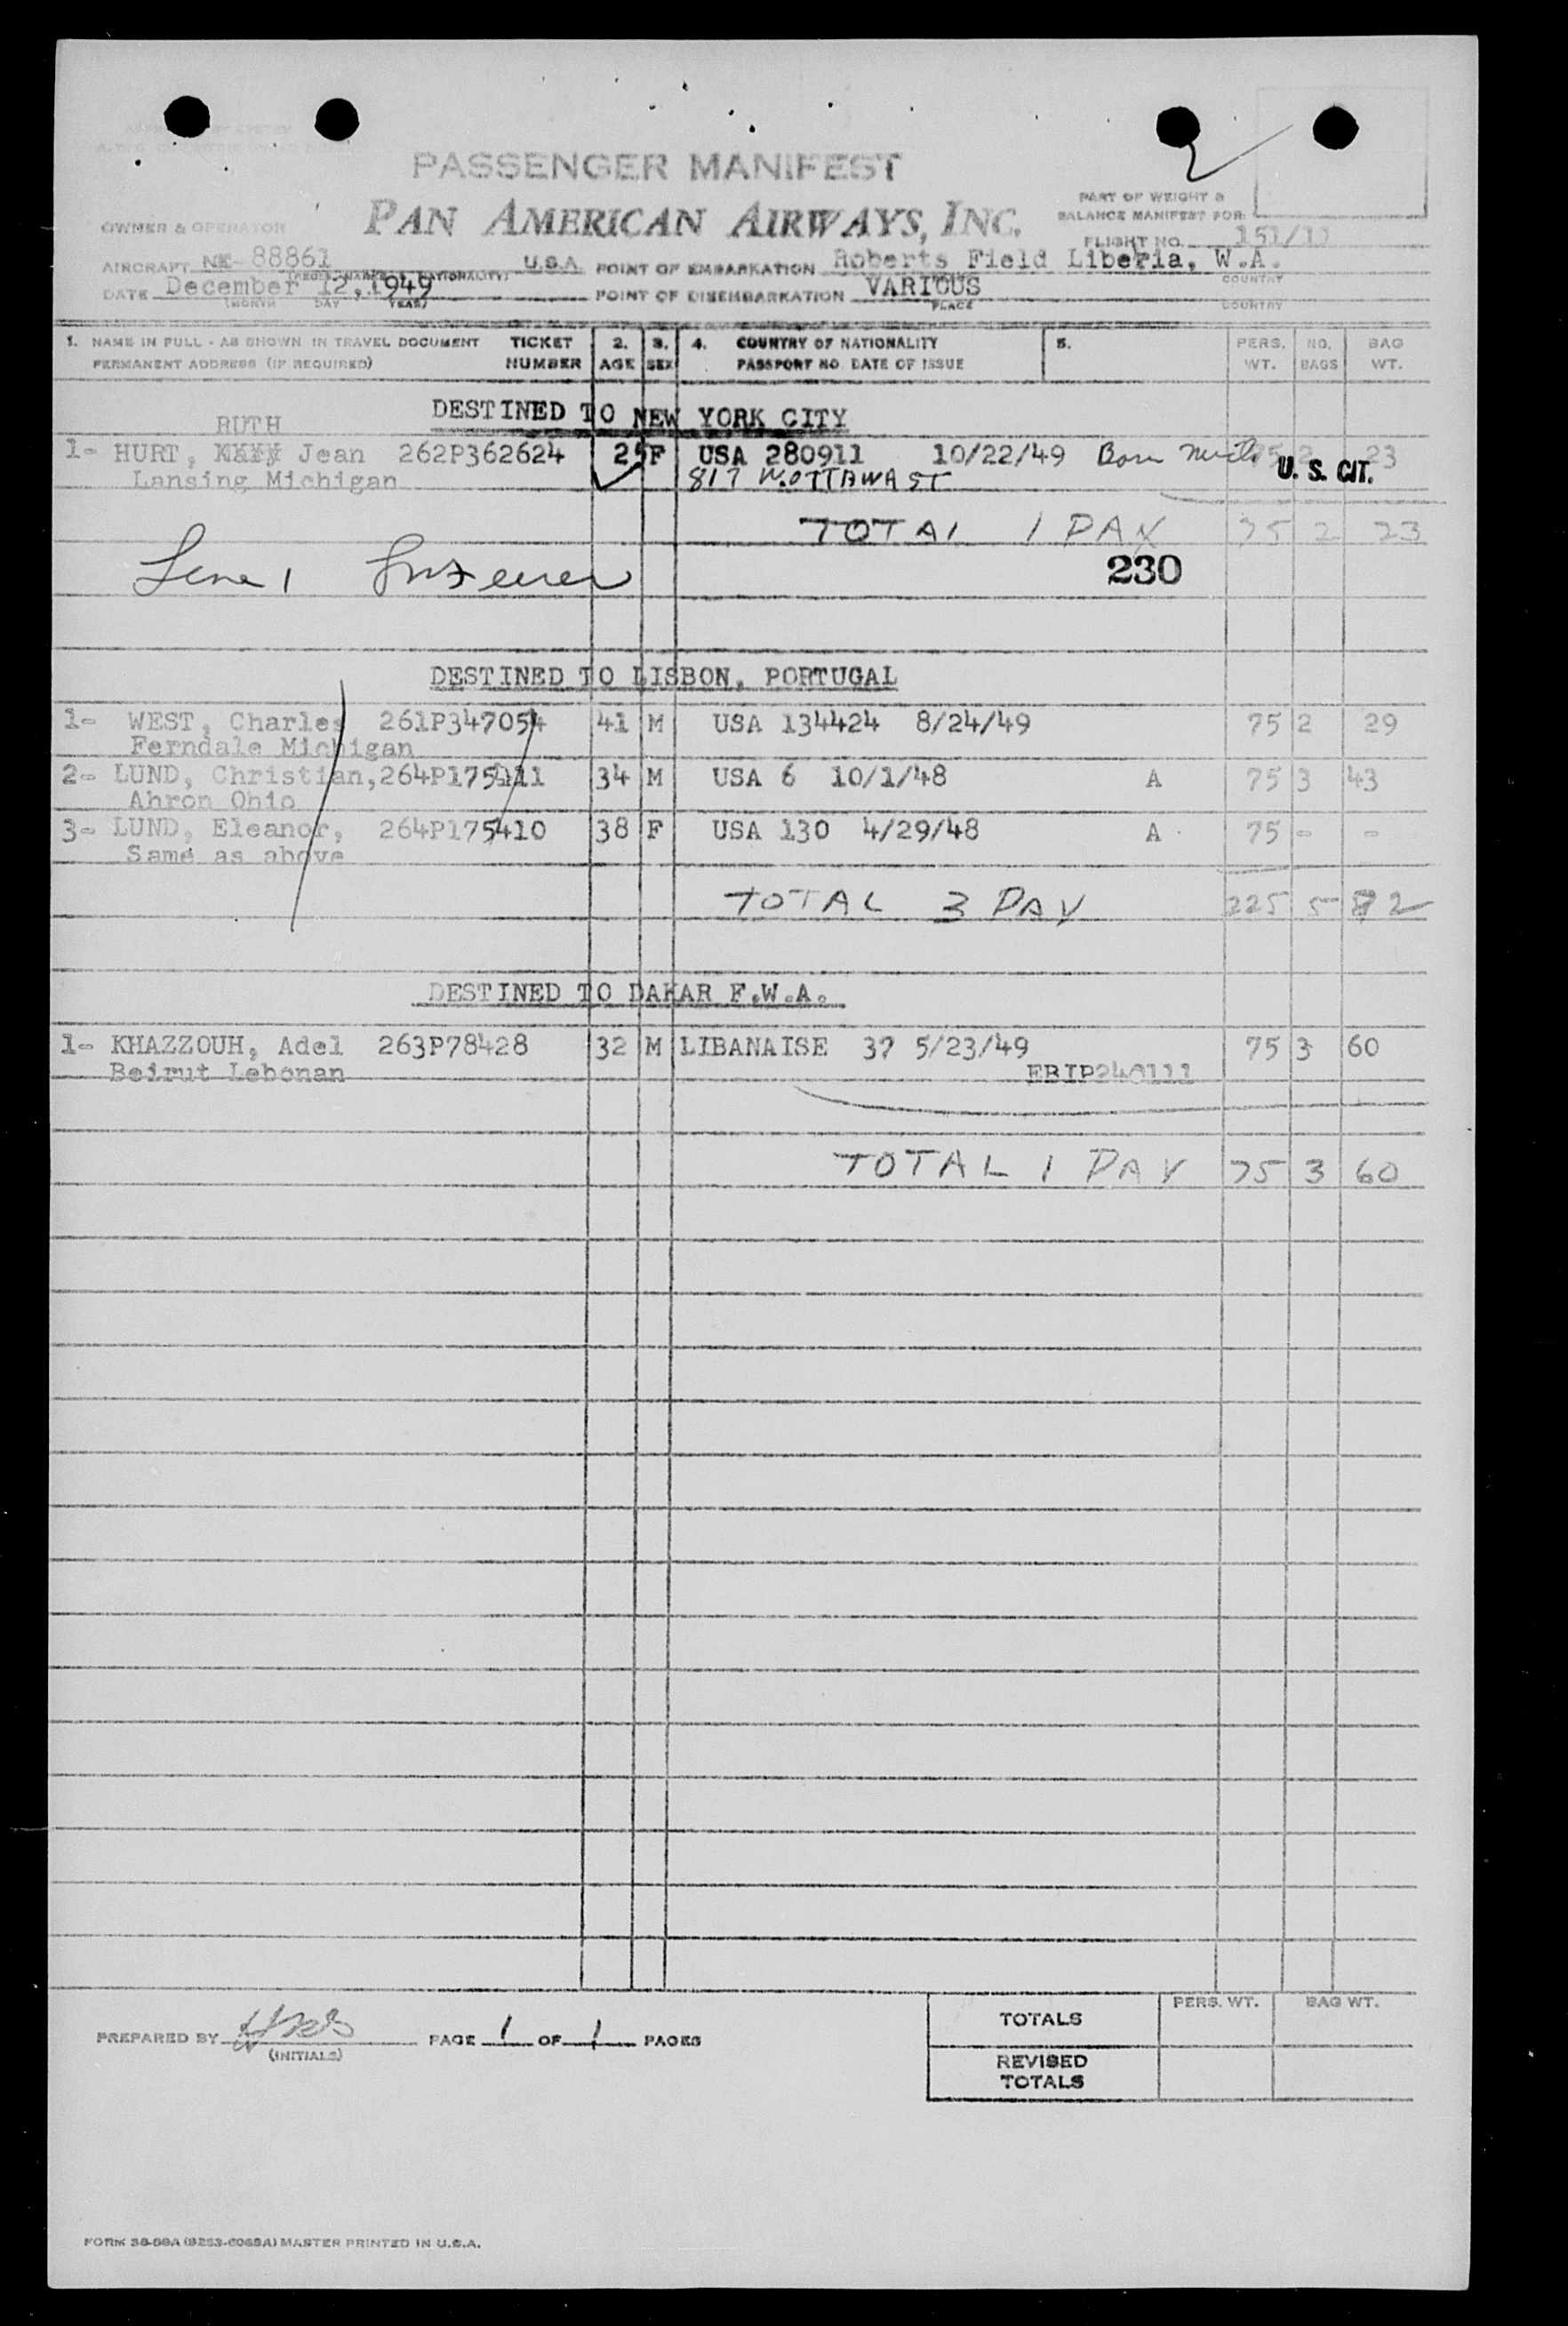 PASSENGER MANIFEST
PAN AMERICAN AIRWAYS, INC.
PART OF WEIGHT &
BALANCE MANIFEST FOR:
OWNER & OPERATOR
FLIGHT NO. 151/11
AIRCRAFT NK-88861 U.S.A POINT OF EMBARKATION Roberts Field Liberia, W.A.
COUNTRY
DATE December 12, 1949 POINT OF DISEMBARKATION VARIOUS
(MONTH DAY YEAR) PLACE COUNTRY
1. NAME IN FULL - AS SHOWN IN TRAVEL DOCUMENT TICKET 2. 3. 4. COUNTRY OF NATIONALITY 5. PERS. NO. BAG
PERMANENT ADDRESS (IF REQUIRED) NUMBER AGE SEX PASSPORT NO. DATE OF ISSUE WT. BAGS WT.
DESTINED TO NEW YORK CITY
RUTH
1- HURT, Jean 262P362624 25 F USA 280911 10/22/49 Born 75 2 23
Lansing Michigan 817 W. OTTAWA ST U. S. CIT.
TOTAL 1 PAX 75 2 23
Line 1
230
DESTINED TO LISBON, PORTUGAL
1- WEST, Charles 261P347054 41 M USA 134424 8/24/49 75 2 29
Ferndale Michigan
2- LUND, Christian, 264P175411 34 M USA 6 10/1/48 A 75 3 43
Ahron Ohio
3- LUND, Eleanor, 264P175410 38 F USA 130 4/29/48 A 75 - -
Same as above
TOTAL 3 PAX 225 5 72
DESTINED TO DAKAR F.W.A.
1- KHAZZOUH, Adel 263P78428 32 M LIBANAISE 37 5/23/49 75 3 60
Beirut Lebonan EBIP240111
TOTAL 1 PAX 75 3 60
PERS. WT. BAG WT.
TOTALS
PREPARED BY PAGE 1 OF 1 PAGES
(INITIALS)
REVISED
TOTALS
FORM 38-58A (9253-6065A) MASTER PRINTED IN U.S.A.